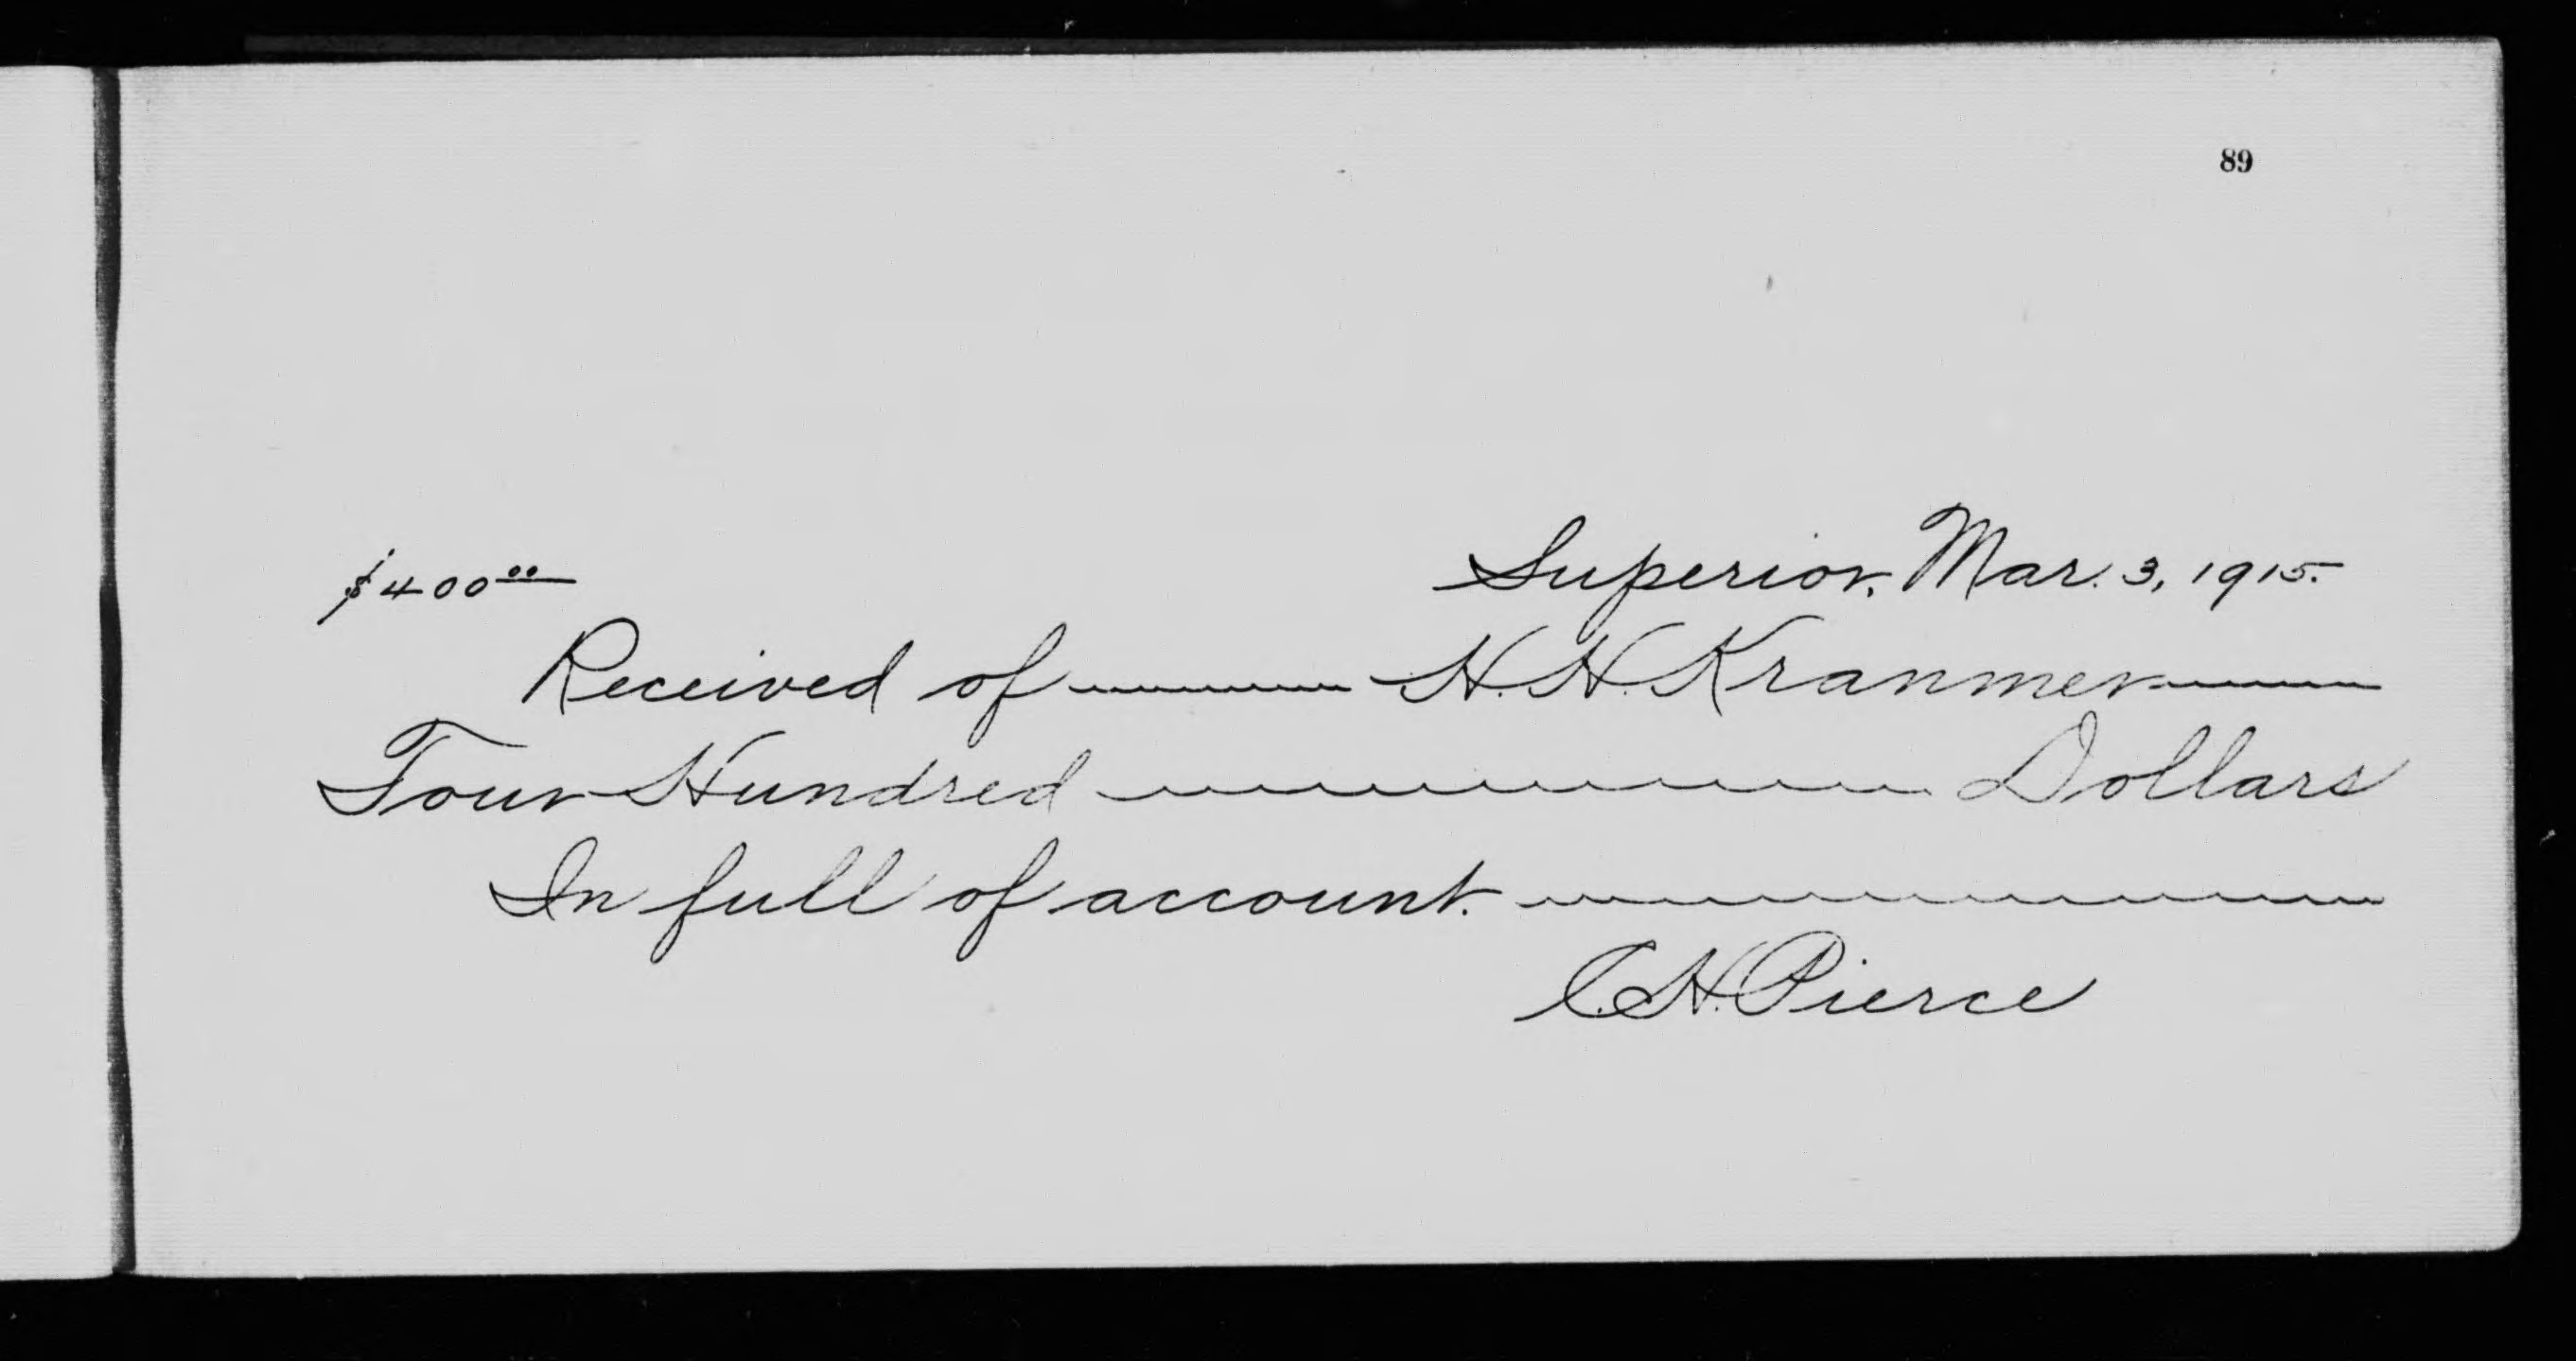 89
$400.00 Superior, Mar. 3, 1915.
Received of H. H. Kranmer
Four Hundred Dollars
In full of account.
C. H. Pierce